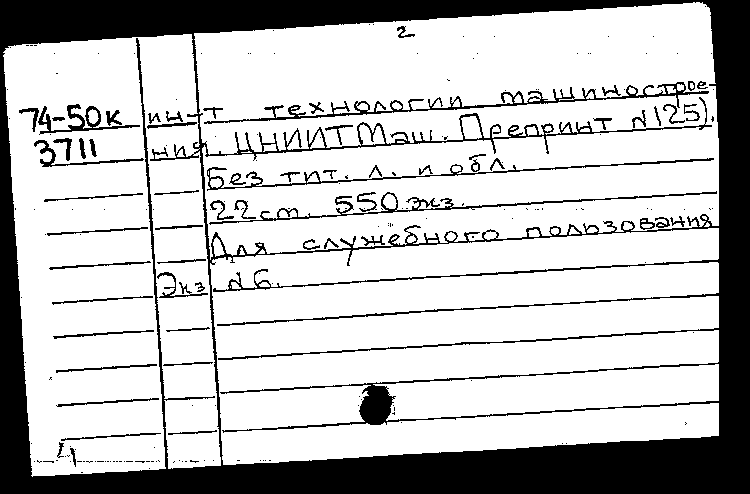 2
74-50к ин-т технологии машинострое-
3711 ния. ЦНИИТМаш. Препринт №125).
Без тит. л. и обл.
22 см. 550 экз.
Для служебного пользования
Экз. №6.
4